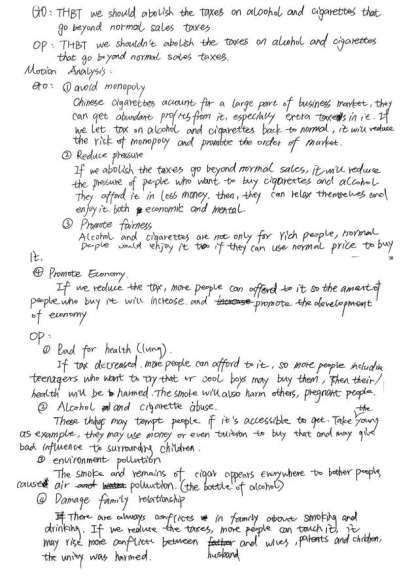 GO: THBT we should abolish the taxes on alcohol and cigarettes that
go beyond normal sales taxes.
OP: THBT we shouldn't abolish the taxes on alcohol and cigarettes
that go beyond normal sales taxes.
Motion Analysis:
Gro: ① avoid monopoly
Chinese cigarettes account for a large part of business market, they
can get abundant profits from it, especially extra taxes in it. If
we let tax on alcohol and cigarettes back to normal, it will reduce
the risk of monopoly and promote the order of market.
② Reduce pressure
If we abolish the taxes go beyond normal sales, it will reduce
the pressure of people who want to buy cigarettes and alcohol
They afford it in less money. then, they can relax themselves and
enjoy it both economic and mental.
③ Promote fairness
Alcohol and cigarettes are not only for rich people, normal
people would enjoy it too if they can use normal price to buy
it.
④ Promote Economy.
If we reduce the tax, more people can afford to it so the amount of
people who buy it will increase. and promote the development
of economy
OP:
① Bad for health (lung).
If tax decreased, more people can afford to it, so more people include
teenagers who want to try that or cool boys may buy them, Then their
health will be harmed. The smoke will also harm others, pregnant people.
② Alcohol and cigarette abuse.
These things may tempt people if it's accessible to get. Take the young
as example, they may use money or even tuition to buy that and may give
bad influence to surrounding children.
③ environment pollution
The smoke and remains of cigar appears everywhere to bother people,
caused air pollution. (the bottle of alcohol)
④ Damage family relationship
There are always conflicts in family about smoking and
drinking. If we reduce the taxes, more people can touch it, it
may rise more conflicts between husband and wives, parents and children,
the unity was harmed.